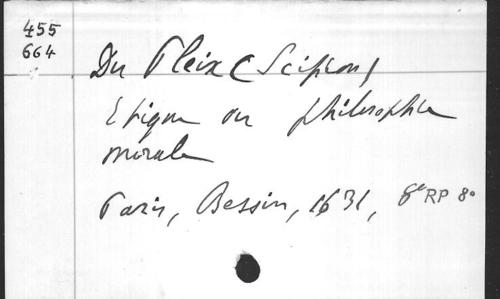 455
664
Du Pleix (Scipion)
Ethique ou philosophie
morale
Paris, Bessin, 1631, 8° RP 8°